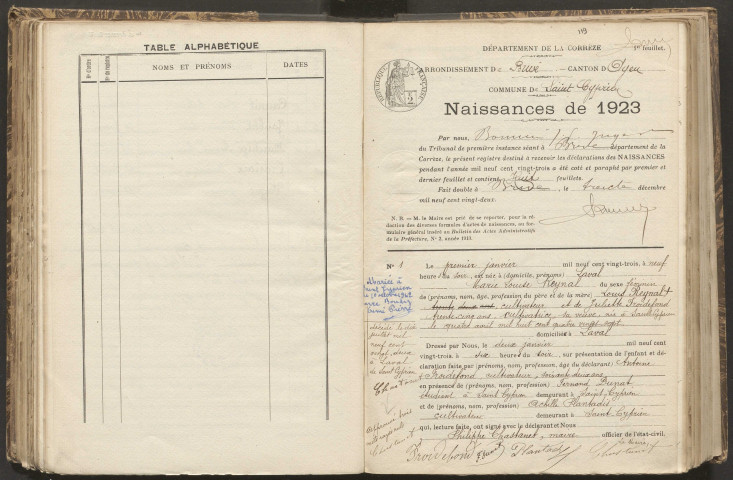 TABLE ALPHABÉTIQUE
Nos d'ordre
NOMS ET PRÉNOMS
DATES
119
DÉPARTEMENT DE LA CORRÈZE
1er feuillet.
ARRONDISSEMENT DE Brive CANTON D'Ayen
COMMUNE DE Saint Cyprien
RÉPUBLIQUE FRANÇAISE
2
Naissances de 1923
Par nous, juge
du Tribunal de première instance séant à Brive département de la
Corrèze, le présent registre destiné à recevoir les déclarations des NAISSANCES
pendant l'année mil neuf cent vingt-trois a été coté et paraphé par premier et
dernier feuillet et contient huit feuillets.
Fait double à Brive, le trente décembre
mil neuf cent vingt-deux.
N. B. — M. le Maire est prié de se reporter, pour la ré-
daction des diverses formules d'actes de naissances, au for-
mulaire général inséré au Bulletin des Actes Administratifs
de la Préfecture, N° 2, année 1913.
N° 1
Le premier janvier mil neuf cent vingt-trois, à neuf
heures du soir, est née à (domicile, prénoms) Laval
Marie Louise Reynal du sexe féminin
de (prénoms, nom, âge, profession du père et de la mère) Louis Reynal
cultivateur et de Juliette Froidefond
trente cinq ans, cultivatrice, sa veuve née à Saint Cyprien
le quatre avril mil huit cent quatre vingt sept
domiciliés à Laval
Dressé par Nous, le deux janvier mil neuf cent
vingt-trois à six heures du soir, sur présentation de l'enfant et dé-
claration faite par (prénoms, nom, profession, âge du déclarant) Antoine
Froidefond cultivateur, soixante deux ans
en présence de (prénoms, nom, profession) Fernand
étudiant à Saint Cyprien demeurant à Saint-Cyprien
et de (prénoms, nom, profession) Achille Plantadis
cultivateur demeurant à Saint-Cyprien
qui, lecture faite, ont signé avec le déclarant et Nous
Philippe Chastanet, maire officier de l'état-civil.
Froidefond Plantadis Chastanet
Mariée à
Saint Cyprien
décédé le
mil
neuf cent
à Laval
de Saint Cyprien
Chastanet